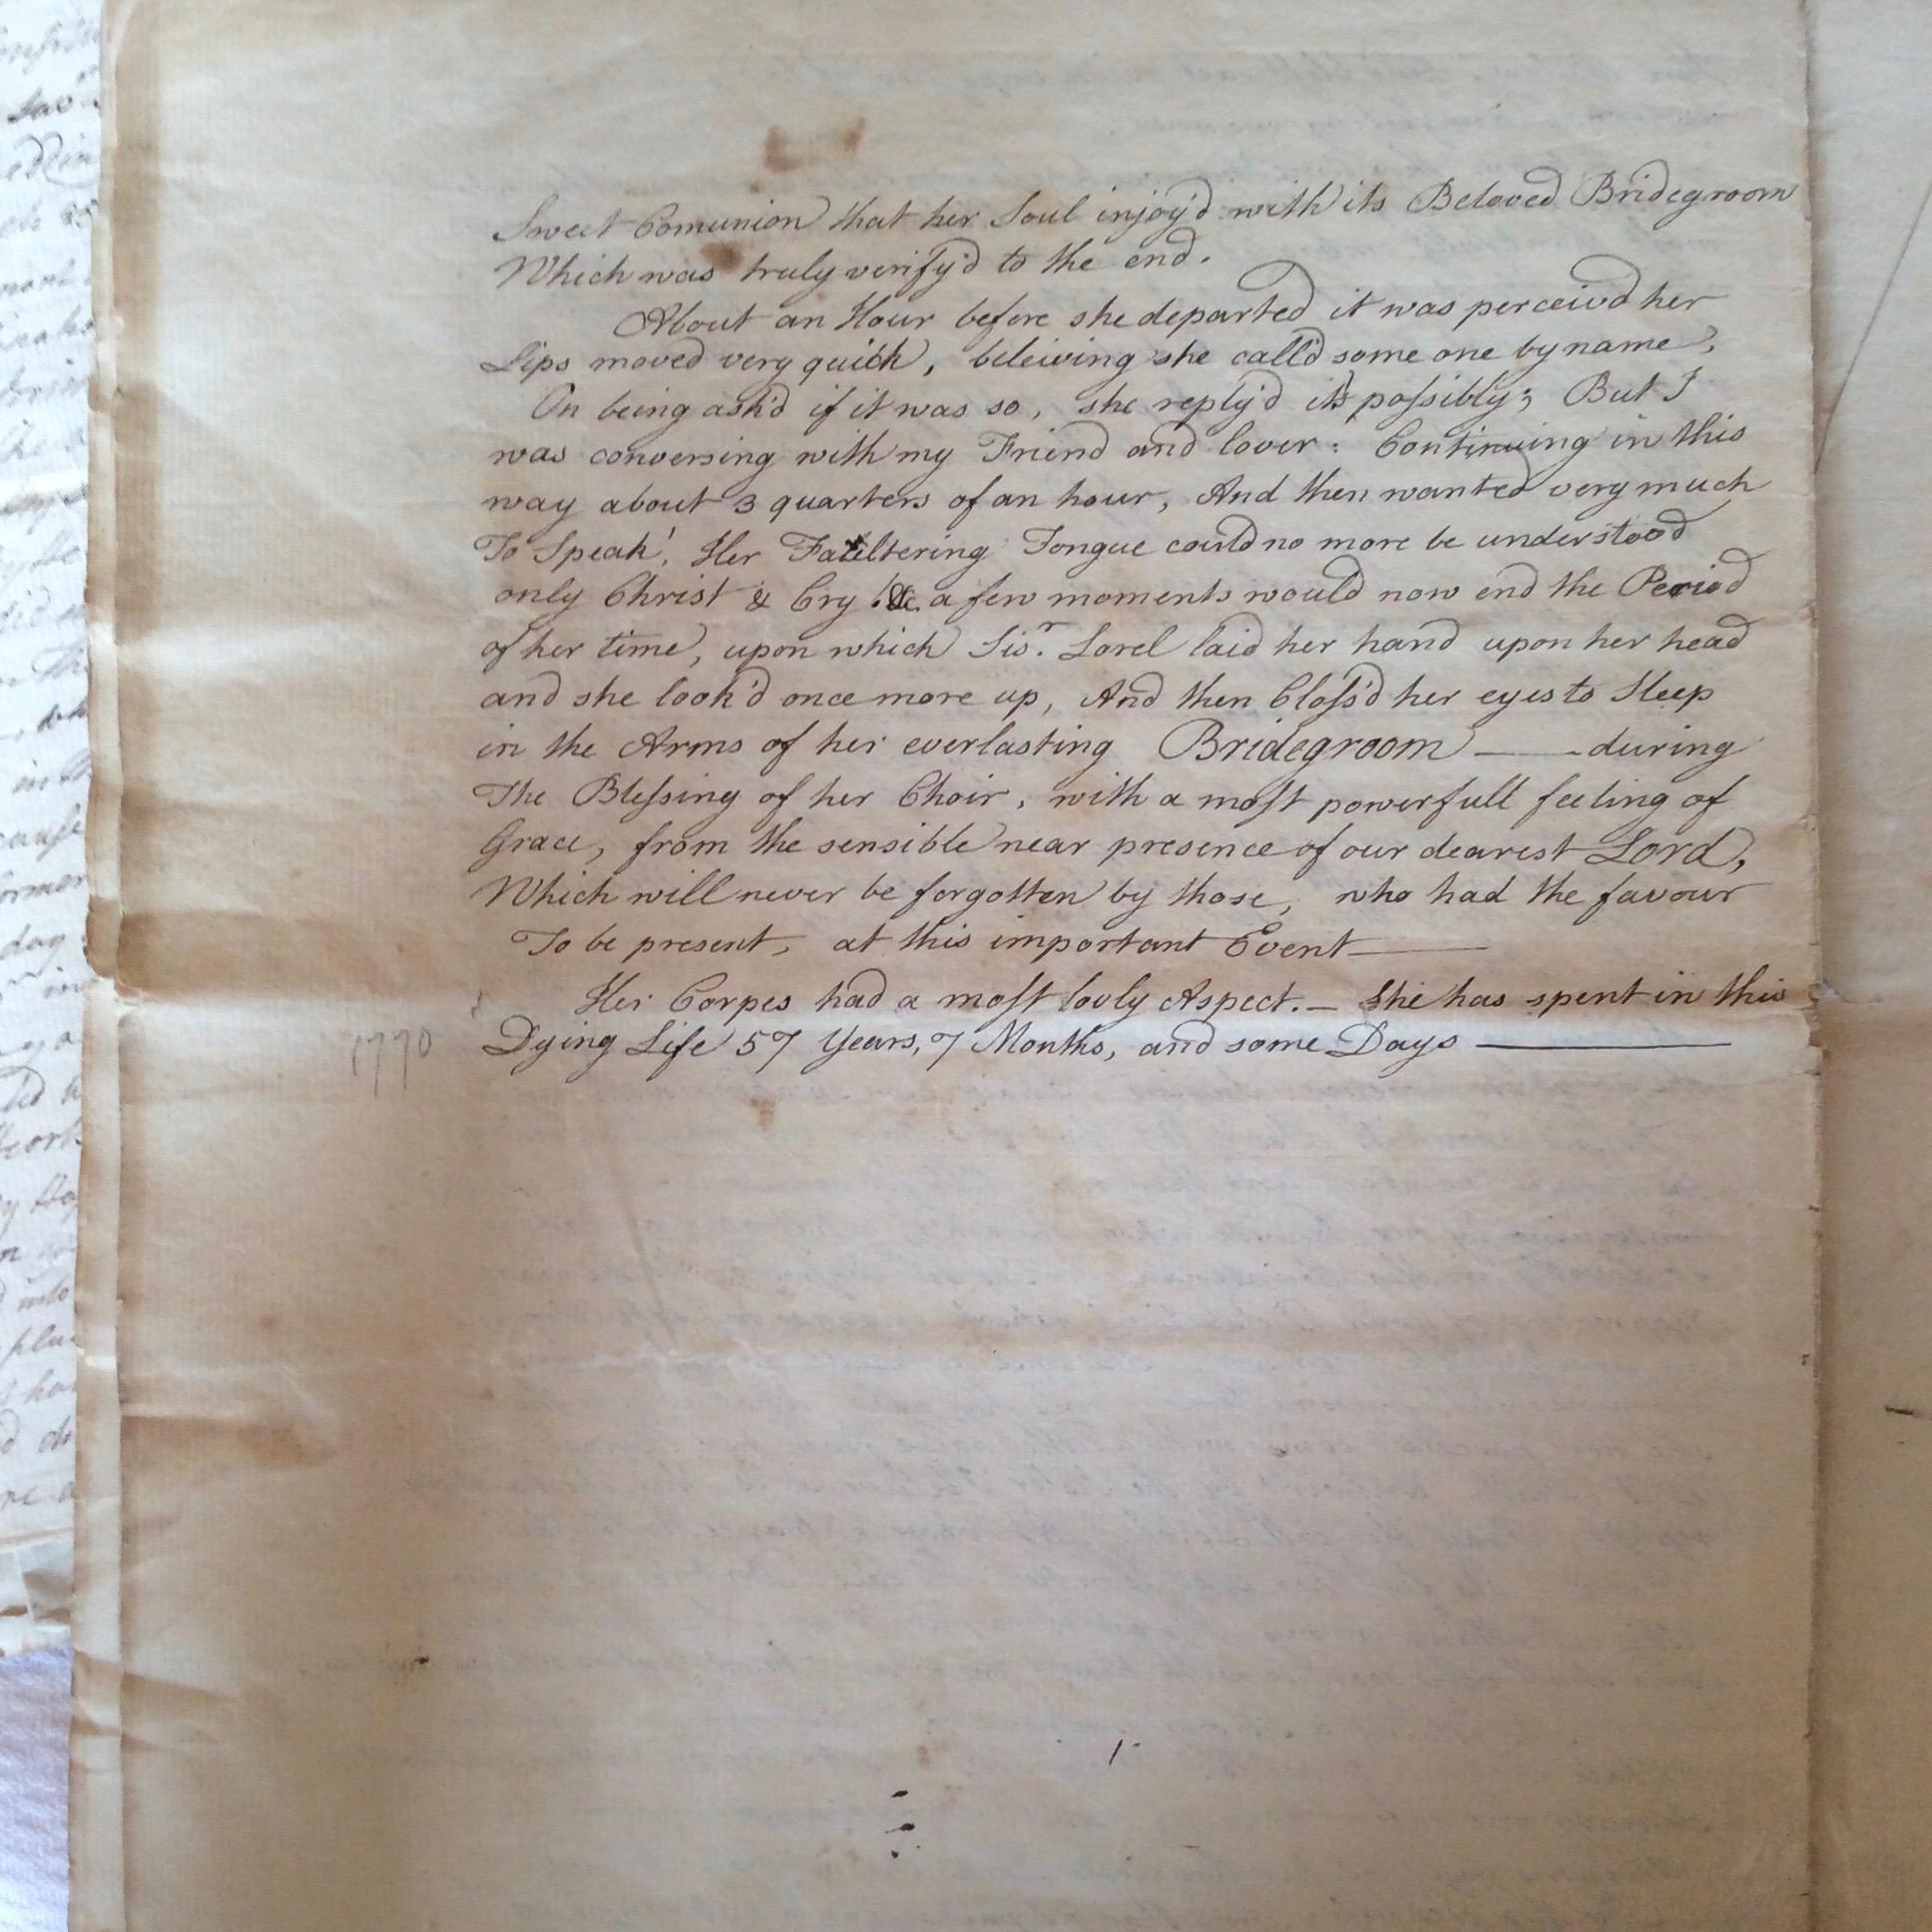 Sweet Comunion that her Soul injoy'd with its Beloved Bridegroom
Which was truly verify'd to the end.
About an Hour before she departed it was perceivd her
Lips moved very quick, beleiving she call'd some one by name,
On being ask'd if it was so, she reply'd its possibly; But I
was conversing with my Friend and lover: Continuing in this
way about 3 quarters of an hour, And then wanted very much
To Speak! Her Faultering Tongue could no more be understood
only Christ & Cry &c. a few moments would now end the Period
of her time, upon which Sisr. Lorel laid her hand upon her head
and she look'd once more up, And then Closs'd her eyes to Sleep
in the Arms of her everlasting Bridegroom —— during
The Blessing of her Choir, with a most powerfull feeling of
Grace, from the sensible near presence of our dearest Lord,
Which will never be forgotten by those, who had the favour
To be present, at this important Event ——
Her Corpes had a most lovly Aspect. — She has spent in this
1770 Dying Life 57 Years, 7 Months, and some Days ——